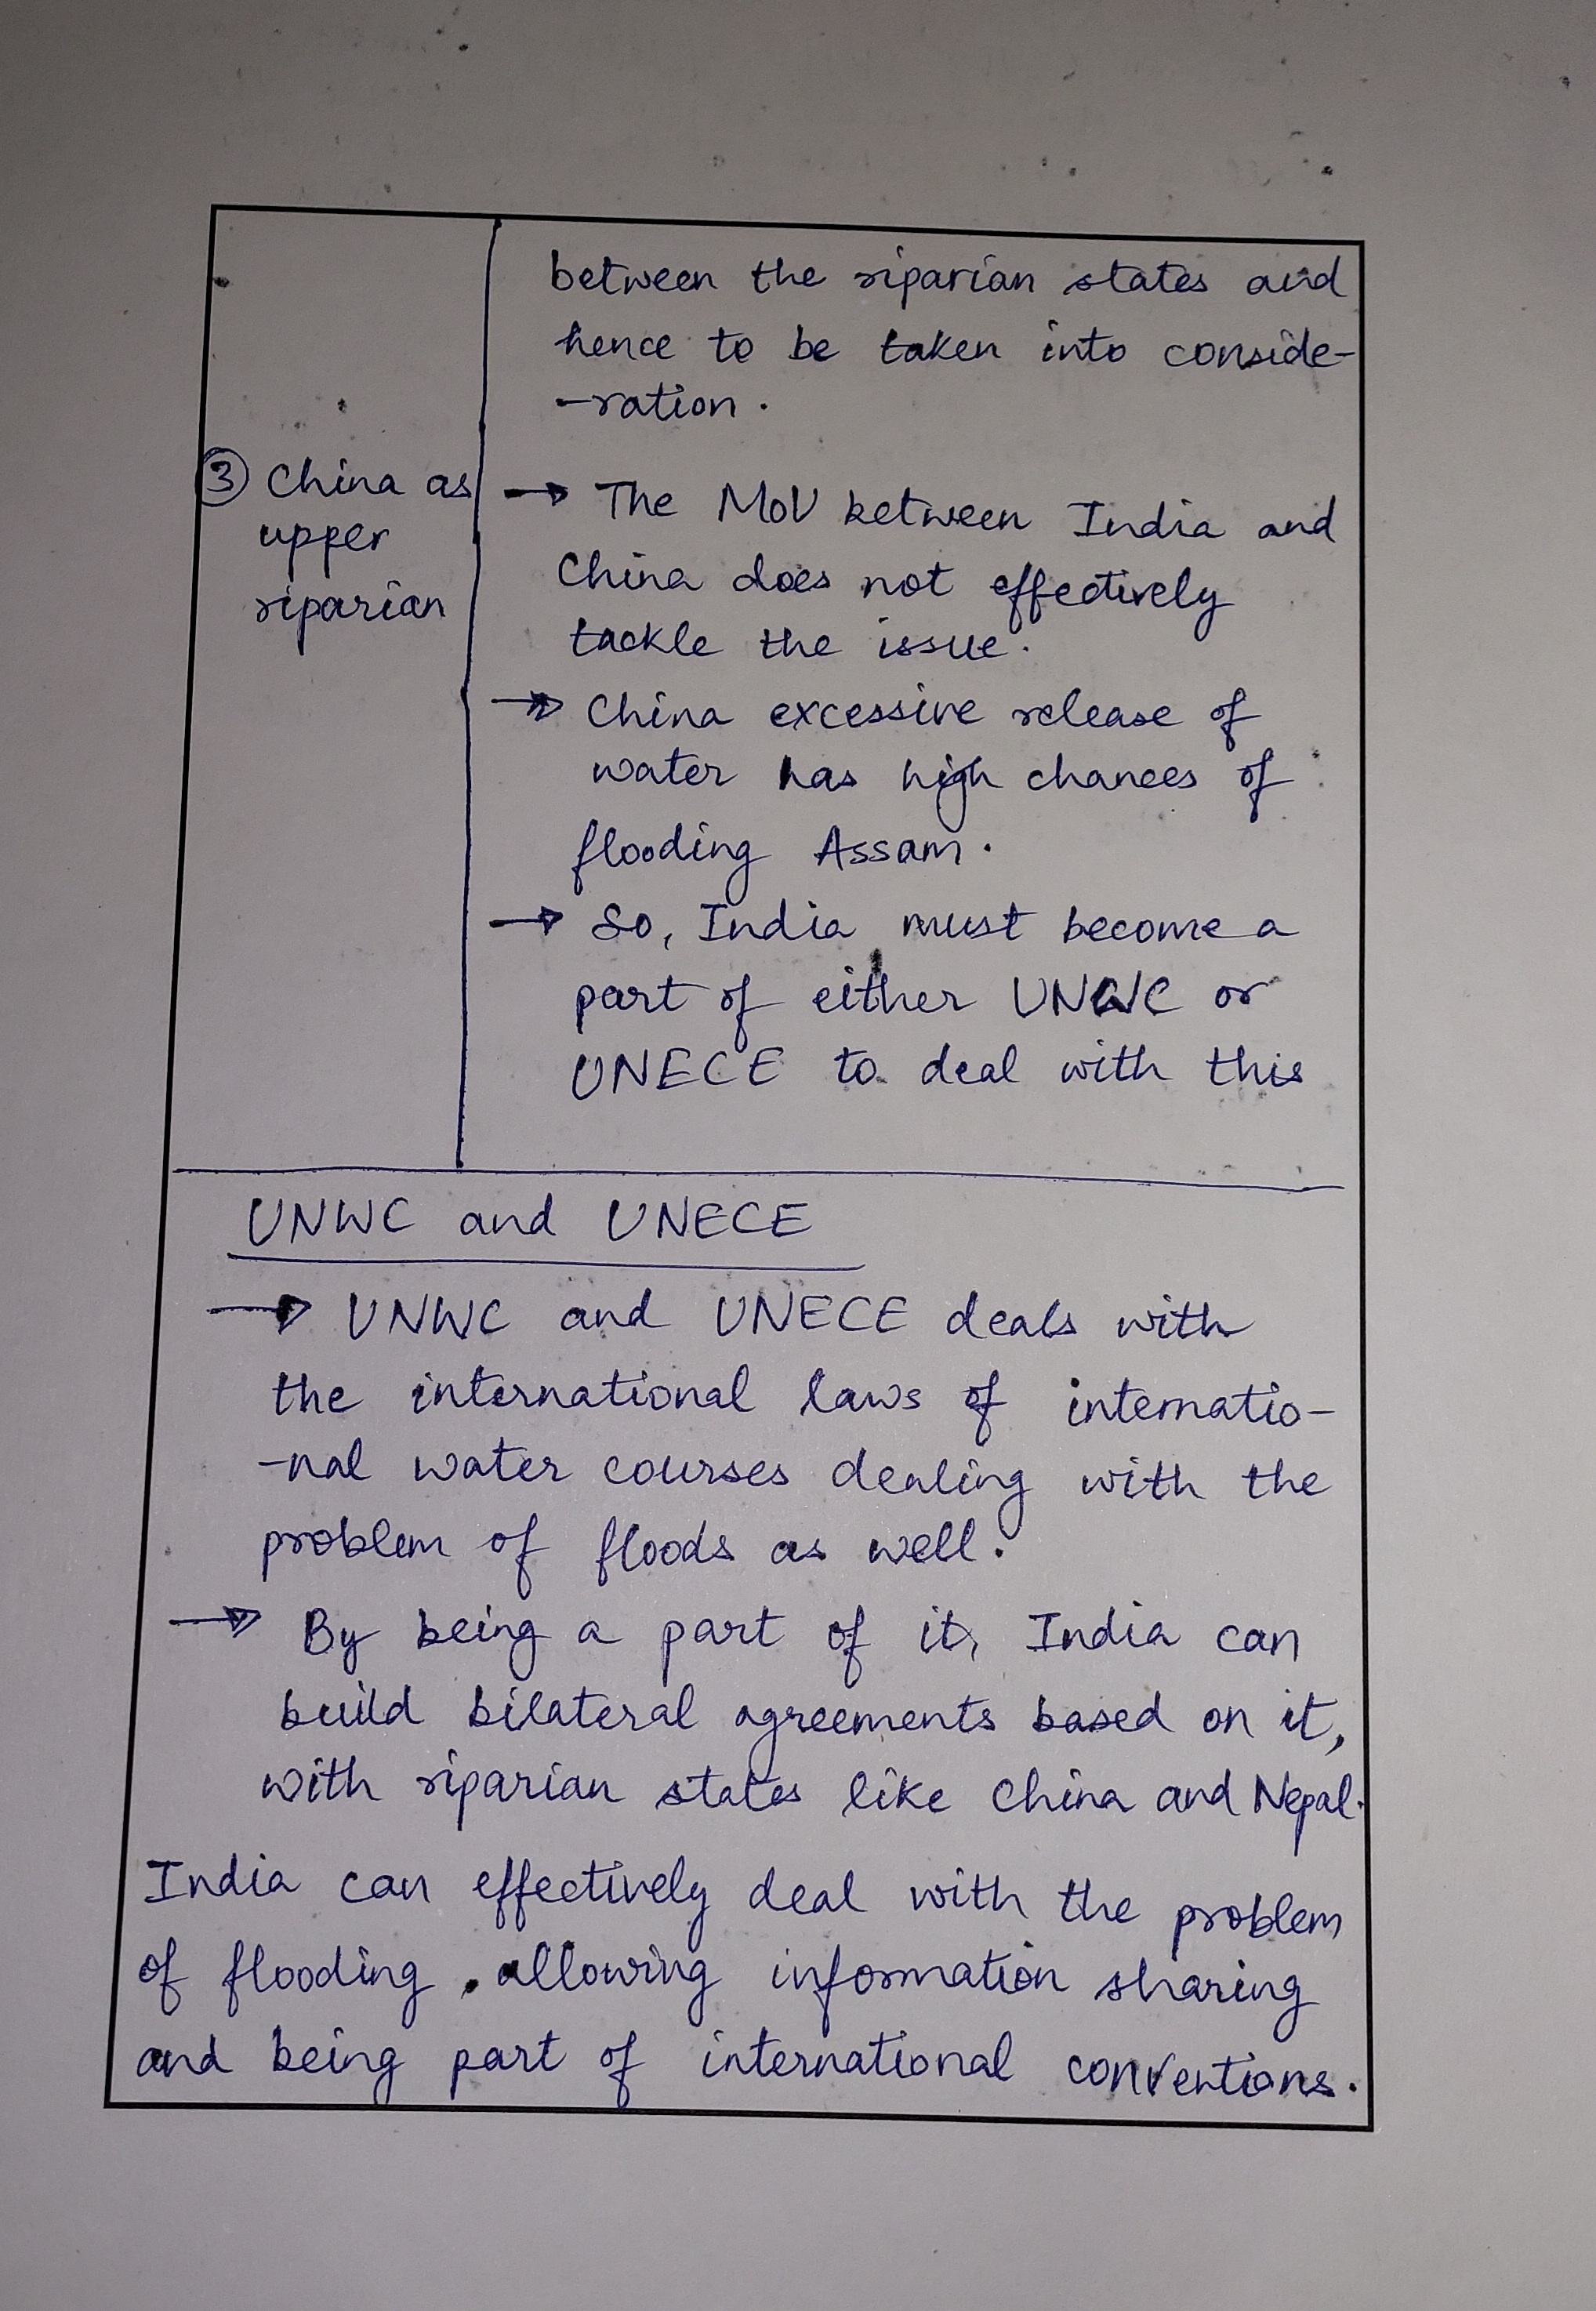 between the riparian states and
hence to be taken into conside-
-ration.
③ China as
upper
riparian
→ The MoU between India and
China does not effectively
tackle the issue.
→ China excessive release of
water has high chances of
flooding Assam.
→ So, India must become a
part of either UNWC or
UNECE to deal with this
UNWC and UNECE
→ UNWC and UNECE deals with
the international laws of internatio-
-nal water courses dealing with the
problem of floods as well.
→ By being a part of it, India can
build bilateral agreements based on it,
with riparian states like China and Nepal.
India can effectively deal with the problem
of flooding, allowing information sharing
and being part of international conventions.